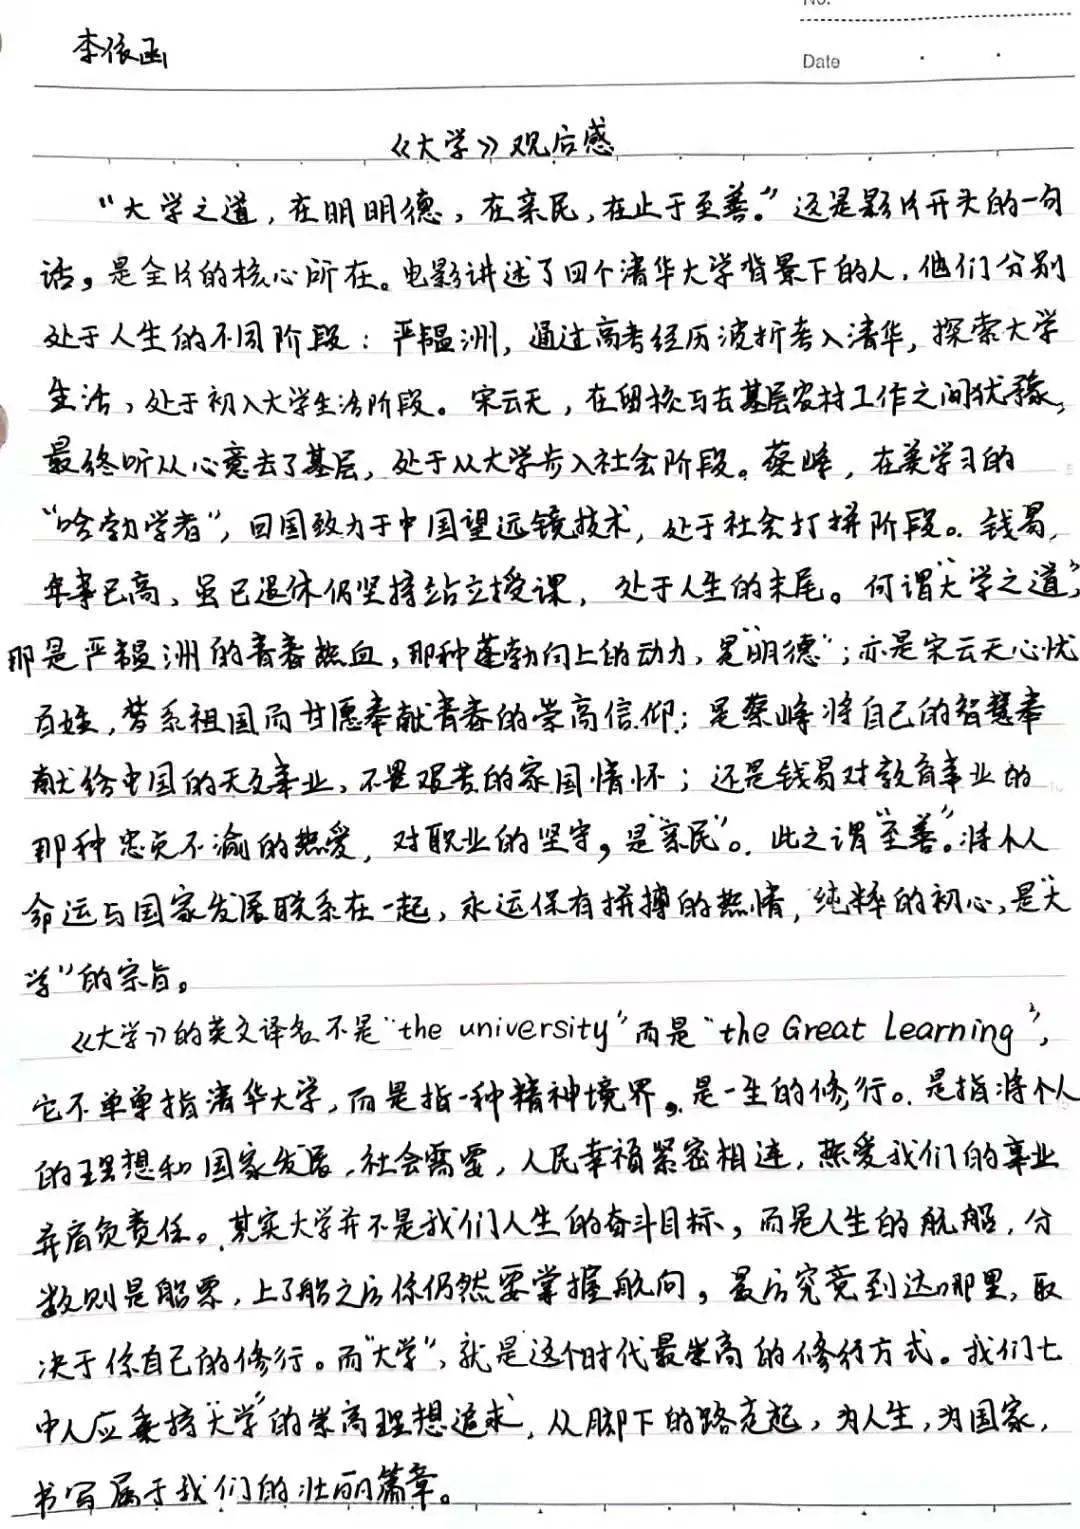 No.
李依函
Date
《大学》观后感
“大学之道,在明明德,在亲民,在止于至善。”这是影片开头的一句
话,是全片的核心所在。电影讲述了四个清华大学背景下的人,他们分别
处于人生的不同阶段:严韫洲,通过高考经历波折考入清华,探索大学
生活,处于初入大学生活阶段。宋云天,在留校与去基层农村工作之间犹豫,
最终听从心意去了基层,处于从大学步入社会阶段。蔡峥,在美学习的
“哈勃学者”,回国致力于中国望远镜技术,处于社会打拼阶段。钱易,
年事已高,虽已退休仍坚持站立授课,处于人生的末尾。何谓“大学之道”,
那是严韫洲的青春热血,那种蓬勃向上的动力,是“明德”;亦是宋云天心忧
百姓,梦系祖国而甘愿奉献青春的崇高信仰;是蔡峥将自己的智慧奉
献给中国的天文事业,不畏艰苦的家国情怀;还是钱易对教育事业的
那种忠贞不渝的热爱,对职业的坚守,是“亲民”。此之谓“至善”。将个人
命运与国家发展联系在一起,永远保有拼搏的热情,纯粹的初心,是“大
学”的宗旨。
《大学》的英文译名不是“the university”而是“the Great Learning”,
它不单单指清华大学,而是指一种精神境界,是一生的修行。是指将个人
的理想和国家发展,社会需要,人民幸福紧密相连,热爱我们的事业
并肩负责任。其实大学并不是我们人生的奋斗目标,而是人生的航船,分
数则是船票,上了船之后你仍然要掌握航向,最后究竟到达哪里,取
决于你自己的修行。而“大学”,就是这个时代最崇高的修行方式。我们七
中人应秉持“大学”的崇高理想追求,从脚下的路走起,为人生,为国家,
书写属于我们的壮丽篇章。